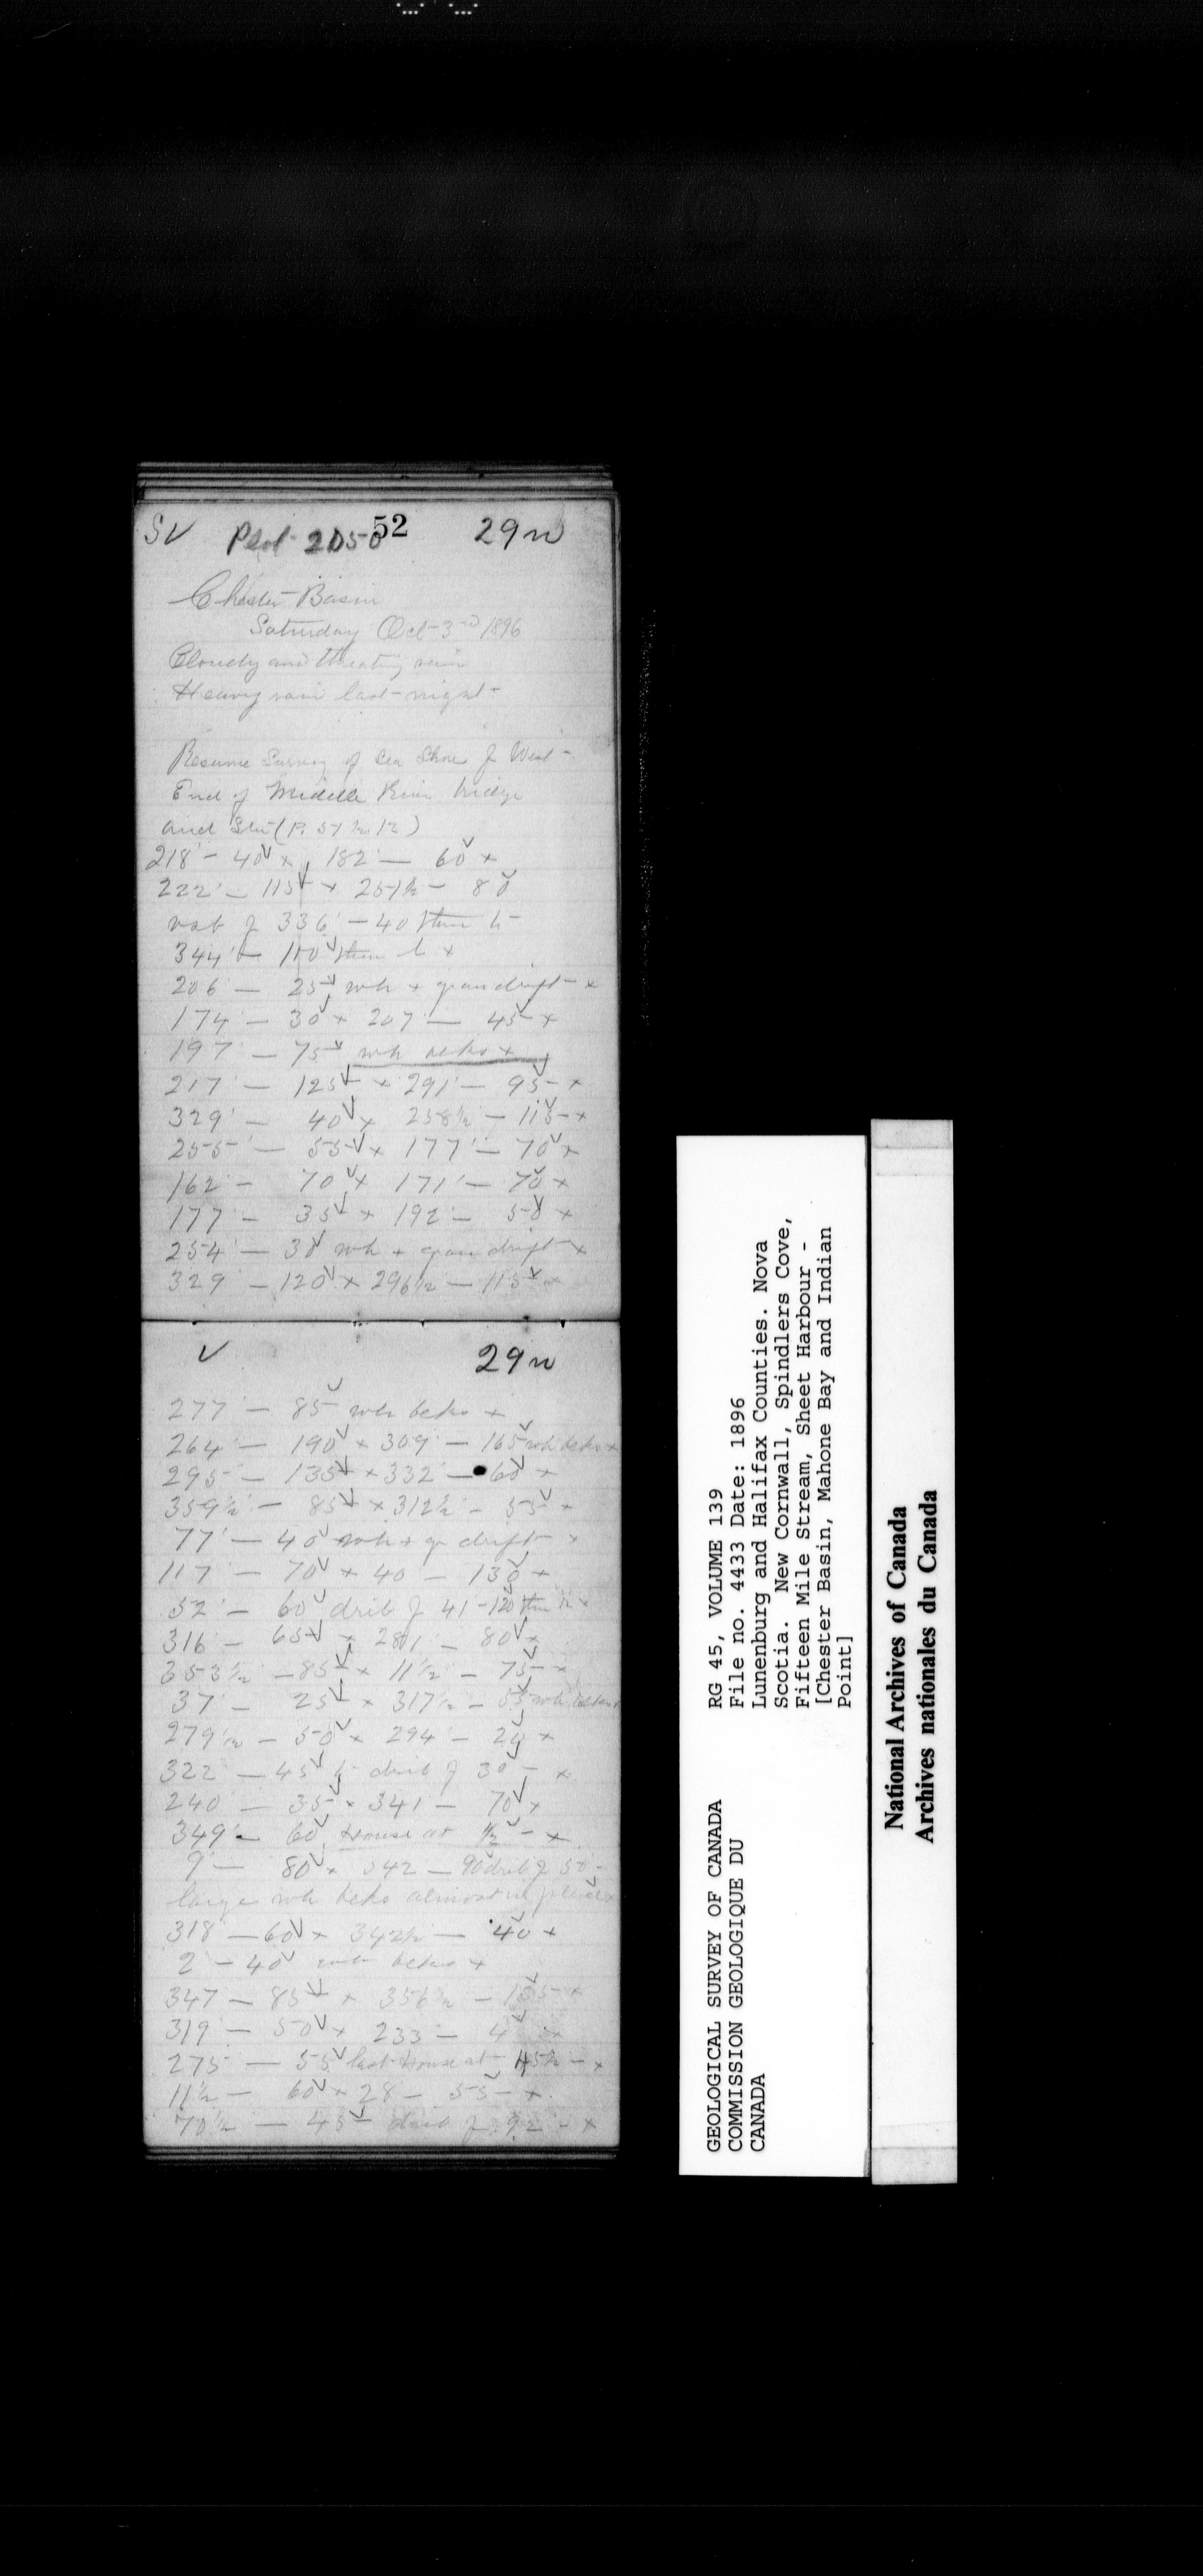 SV Plot 2050 52 29 n
Chester Basin
Saturday Oct 3rd 1896
Cloudy and threating rain
Heavy rain last night
Resume Survey of Sea Shore f West
End of Middle River bridge
and Stn (P. 57
218° - 40 ✓ x 182° — 60 ✓ x
222° — 115 ✓ x 251½ — 80 ✓
f 336° — 40 then
344° — 110 ✓ then x
206° — 25 ✓ wh + gran drift x
174° — 30 ✓ x 207° — 45 ✓ x
197° — 75 ✓ wh x
217° — 125 ✓ x 291° — 95 ✓ x
329° — 40 ✓ x 258½ — 115 ✓ x
255° — 55 ✓ x 177° — 70 ✓ x
162° — 70 ✓ x 171° — 70 ✓ x
177° — 35 ✓ x 192° — 50 ✓ x
254° — 30 ✓ wh + gran drift x
329° — 120 ✓ x 296½ — 115 ✓ x
✓ 29 n
277° — 85 ✓ wh x
264° — 190 ✓ x 309° — 165 ✓ wh x
295° — 135 ✓ x 332° — 60 ✓ x
359½ — 85 ✓ x 312½ — 55 ✓ x
77° — 40 ✓ wh + gr drift x
117° — 70 ✓ x 40° — 130 ✓ x
52° — 60 ✓ f 41 — 120 then x
316° — 65 ✓ x 281° — 80 ✓ x
353½ — 85 ✓ x 11½ — 75 ✓ x
37° — 25 ✓ x 317½ — 55 ✓ wh
279½ — 50 ✓ x 294° — 20 ✓ x
322 — 45 ✓ f 30 — x
240 — 35 ✓ x 341 — 70 ✓ x
349° — 60 ✓ House at x
9° — 80 ✓ x 342 — 90 f 50
large wh almost in place x
318 — 60 ✓ x 342½ — 40 ✓ x
2° — 40 ✓ x
347 — 85 ✓ x 356½ — x
319° — 50 ✓ x 233° — x
275° — 55 ✓ last House at x
11½ — 60 ✓ x 28 — 55 ✓ x
70½ — 45 ✓ x
GEOLOGICAL SURVEY OF CANADA
COMMISSION GEOLOGIQUE DU
CANADA
RG 45, VOLUME 139
File no. 4433 Date: 1896
Lunenburg and Halifax Counties. Nova
Scotia. New Cornwall, Spindlers Cove,
Fifteen Mile Stream, Sheet Harbour -
[Chester Basin, Mahone Bay and Indian
Point]
National Archives of Canada
Archives nationales du Canada